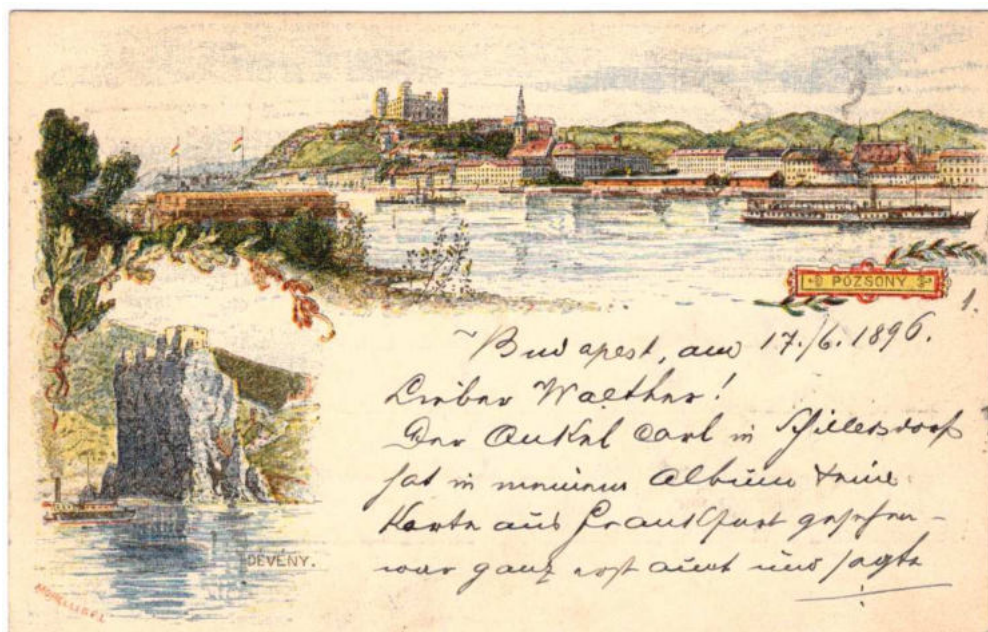 POZSONY
1.
Budapest, am 17./6. 1896.
Lieber Walther!
Der Onkel Carl in Schillersdorf
hat in meinem Album Deine
Karte aus Frankfurt gesehen -
war ganz erstaunt und sagte
DÉVÉNY.